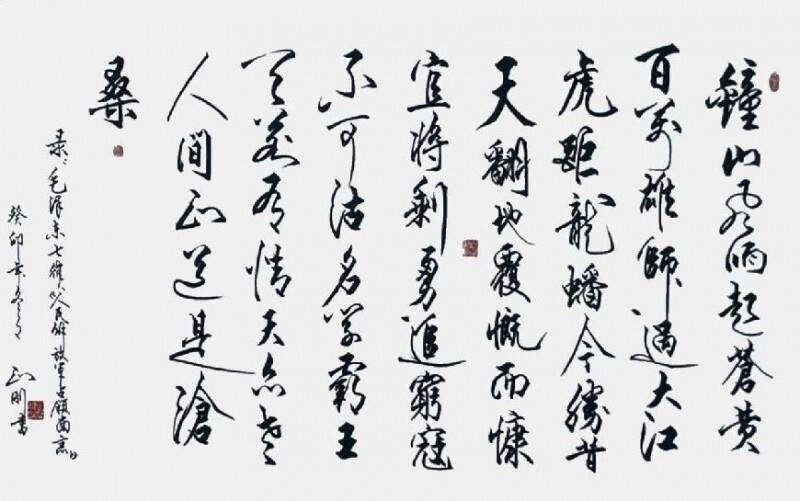 鐘山風雨起蒼黄
百萬雄師過大江
虎距龍蟠今勝昔
天翻地覆慨而慷
宜将剩勇追窮寇
不可沽名学霸王
天若有情天亦老
人間正道是滄
桑
录毛泽东七律人民解放军占领南京
癸卯年冬月 书